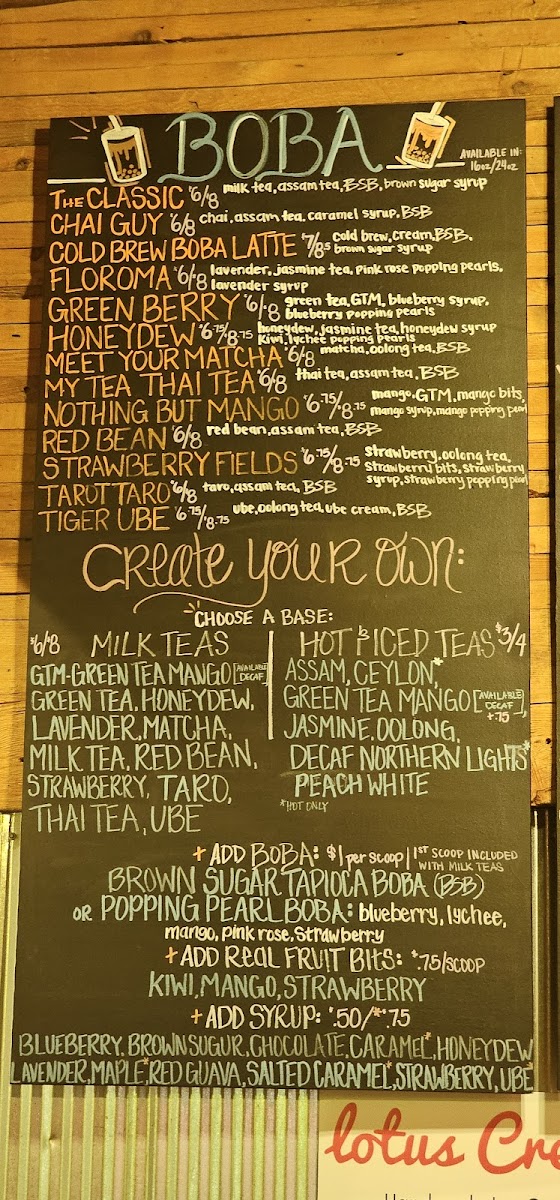 BOBA
AVAILABLE IN:
16oz/24oz
THE CLASSIC $6/8 milk tea, assam tea, BSB, brown sugar syrup
CHAI GUY $6/8 chai, assam tea, caramel syrup, BSB
COLD BREW BOBA LATTE $7/8.5 cold brew, cream, BSB,
brown sugar syrup
FLOROMA $6/8 lavender, jasmine tea, pink rose popping pearls,
lavender syrup
GREEN BERRY $6/8 green tea, GTM, blueberry syrup,
blueberry popping pearls
HONEYDEW $6.75/8.75 honeydew, jasmine tea, honeydew syrup
kiwi, lychee popping pearls
MEET YOUR MATCHA $6/8 matcha, oolong tea, BSB
MY TEA THAI TEA $6/8 thai tea, assam tea, BSB
NOTHING BUT MANGO $6.75/8.75 mango, GTM, mango bits,
mango syrup, mango popping pearl
RED BEAN $6/8 red bean, assam tea, BSB
STRAWBERRY FIELDS $6.75/8.75 strawberry, oolong tea,
strawberry bits, strawberry
syrup, strawberry popping pearl
TAROT TARO $6/8 taro, assam tea, BSB
TIGER UBE $6.75/$8.75 ube, oolong tea, ube cream, BSB
CREATE YOUR OWN:
CHOOSE A BASE:
$6/$8 MILK TEAS
GTM-GREEN TEA MANGO [AVAILABLE DECAF]
GREEN TEA, HONEYDEW,
LAVENDER, MATCHA,
MILK TEA, RED BEAN,
STRAWBERRY, TARO,
THAI TEA, UBE
HOT & ICED TEAS $3/4
ASSAM, CEYLON,*
GREEN TEA MANGO [AVAILABLE DECAF +.75]
JASMINE, OOLONG,
DECAF NORTHERN LIGHTS*
PEACH WHITE
*HOT ONLY
+ ADD BOBA: $1 per scoop | 1ST SCOOP INCLUDED
WITH MILK TEAS
BROWN SUGAR TAPIOCA BOBA (BSB)
OR POPPING PEARL BOBA: blueberry, lychee,
mango, pink rose, strawberry
+ ADD REAL FRUIT BITS: $.75/SCOOP
KIWI, MANGO, STRAWBERRY
+ ADD SYRUP: $.50/*$.75
BLUEBERRY, BROWN SUGUR, CHOCOLATE, CARAMEL*, HONEYDEW
LAVENDER, MAPLE*, RED GUAVA, SALTED CARAMEL*, STRAWBERRY, UBE
lotus Cre